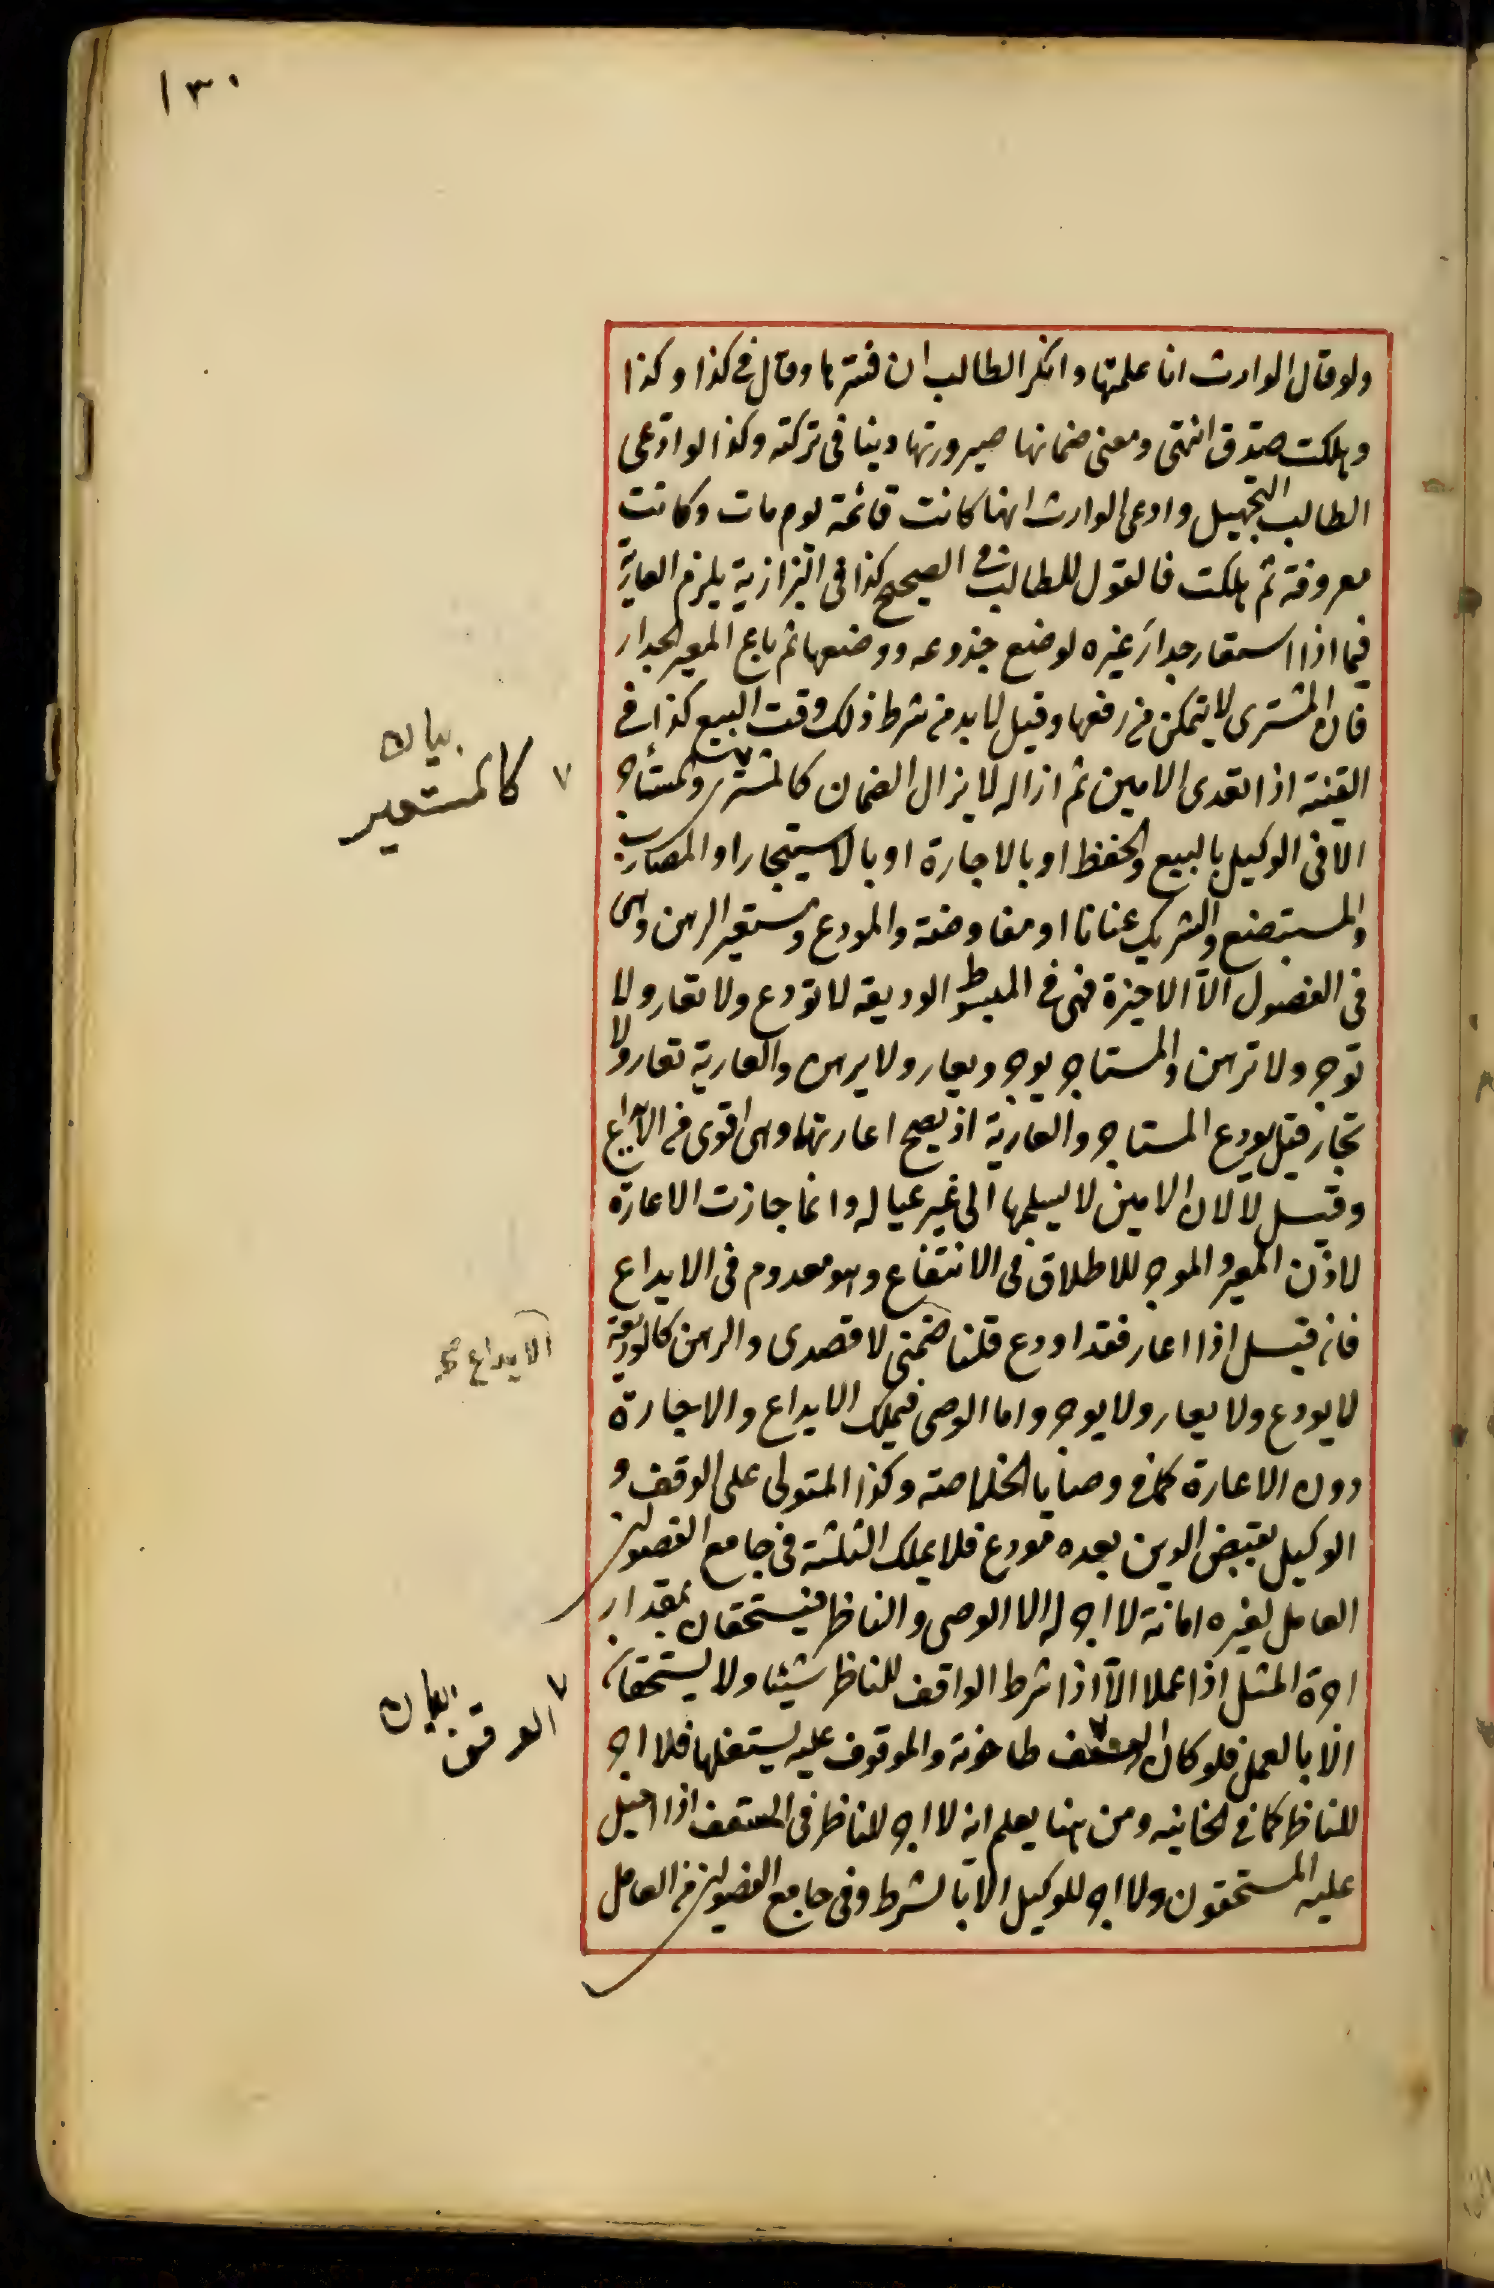 ١٣٠
ولو قال الوارث انا علمتها وانكر الطالب ان فسرها وقال هي كذا وكذا
وهلكت صدق انتهى ومعنى ضمانها صيرورتها دينا في تركته وكذا لو ادعى
الطالب التجهيل وادعى الوارث انها كانت قائمة يوم مات وكانت
معروفة ثم هلكت فالقول للطالب في الصحيح كذا في البزازية يلزم العارية
فيما اذا استعار جدار غيره لوضع جذوعه ووضعها ثم باع المعير الجدار
فان المشترى لا يتمكن من رفعها وقيل لا بد من شرط ذلك وقت البيع كذا في
القنية اذا تعدى الامين ثم ازاله لا يزال الضمان كالمشترى والمستأجر
الا في الوكيل بالبيع والحفظ او بالاجارة او بالاستيجار او المضارب
والمستبضع والشريك عنانا او مفاوضة والمودع ومستعير الرهن وهي
في الفصول الا الاخيرة فهي في المبسوط الوديعة لا تودع ولا تعار ولا
توجر ولا ترهن والمستاجر يوجر ويعار ولا يرهن والعارية تعار ولا
تجار قيل يودع المستاجر والعارية اذ يصح اعارتهما وهي اقوى من الايداع
وقيل لا لان الامين لا يسلمها الى غير عياله وانما جازت الاعارة
لاذن المعير والموجر للاطلاق في الانتفاع وهو معدوم في الايداع
فان قيل اذا اعار فقد اودع قلنا ضمني لا قصدى والرهن كالوديعة
لا يودع ولا يعار ولا يوجر واما الوصى فيملك الايداع والاجارة
دون الاعارة كما في وصايا الخلاصة وكذا المتولى على الوقف و
الوكيل بقبض الدين بعده مودع فلا يملك الثلثة في جامع الفصولين
العامل لغيره امانة لا اجر له الا الوصى والناظر فيستحقان بمقدار
اجرة المثل اذا عملا الا اذا شرط الواقف للناظر شيئا ولا يستحقان
الا بالعمل فلو كان الوقف طاحونة والموقوف عليه يستغلها فلا اجر
للناظر كما في الخانيه ومن هنا يعلم انه لا اجر للناظر في المسقف اذا احيل
عليه المستحقون ولا اجر للوكيل الا بالشرط وفي جامع الفصولين من العامل
بيان
٧ كالمستعير
الايداع صح
٧ الوقف
بيان